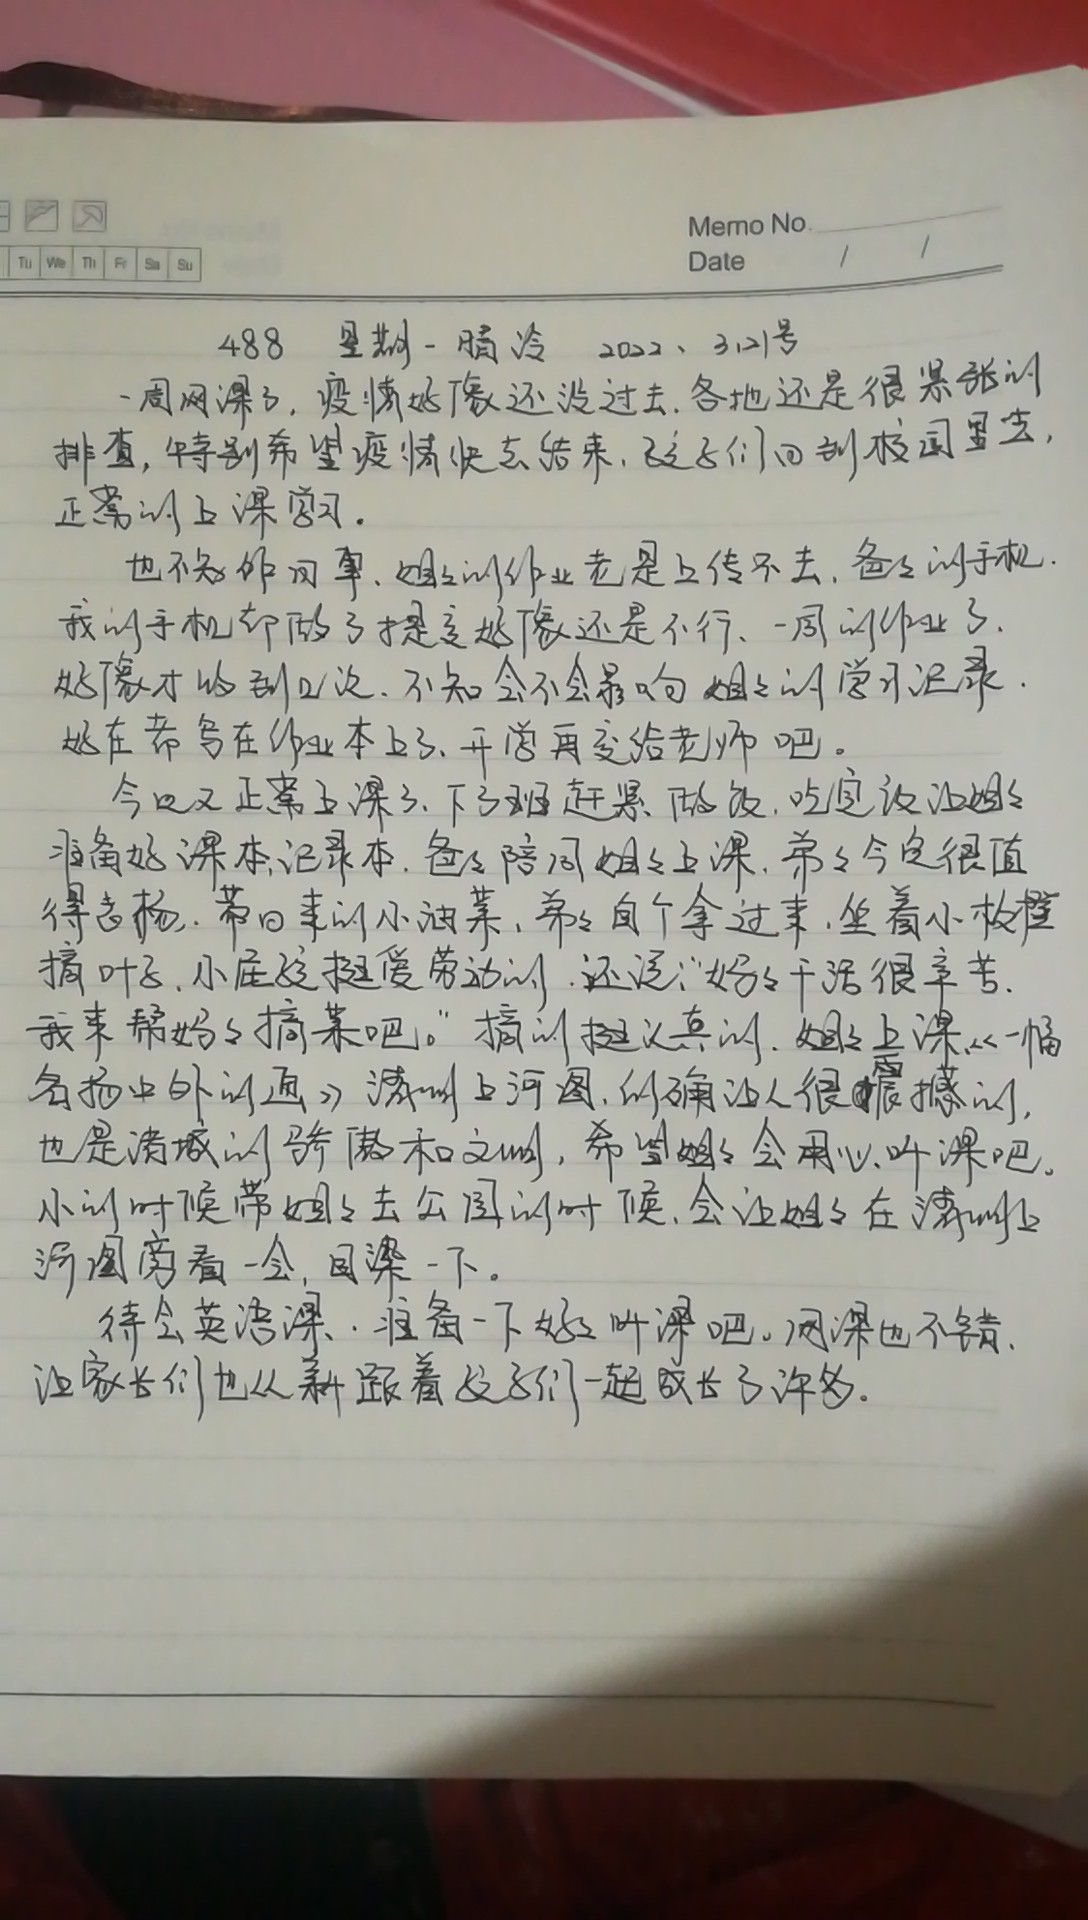 Memo No.
Tu We Th Fr Sa Su
Date / /
488 星期一 晴冷 2022、3.21号
一周网课了，疫情好像还没过去，各地还是很紧张的
排查，特别希望疫情快点结束，孩子们回到校园里去，
正常的上课学习。
也不知咋回事、姐姐的作业老是上传不去，爸爸的手机.
我的手机都做了提交好像还是不行、一周的作业了、
好像才收到几次、不知会不会影响姐姐的学习记录.
好在都写在作业本上了、开学再交给老师吧。
今日又正常上课了、下了班赶紧做饭，吃完饭让姐姐
准备好课本，记录本，爸爸陪同姐姐上课，弟弟今完很值
得表扬，带回来的小油菜，弟弟自个拿过来，坐着小板凳
摘叶子，小屁孩挺爱劳动的，还说："妈妈干活很辛苦、
我来帮妈妈摘菜吧。"摘的挺认真的、姐姐上课《一幅
名扬中外的画》清明上河图，的确让人很震撼的，
也是诸城的骄傲和文明，希望姐姐会用心听课吧。
小的时候带姐姐去公园的时候，会让姐姐在清明上
河图旁看一会，目染一下。
待会英语课、准备一下好好听课吧。网课也不错，
让家长们也从新跟着孩子们一起成长了许多。